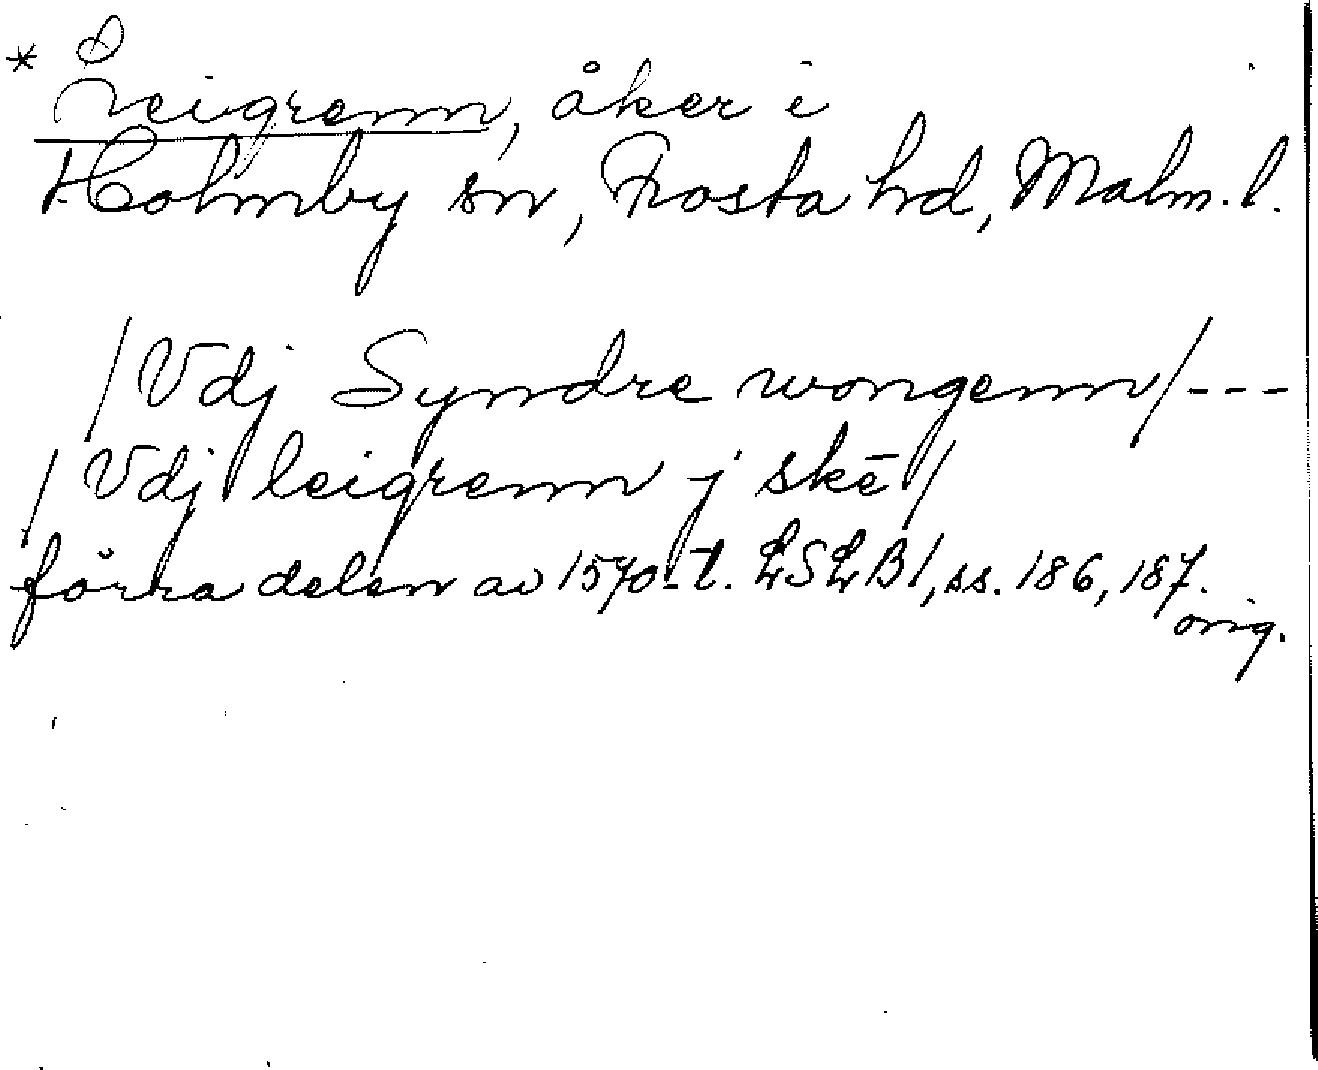 * Leigrenn, åker i
Holmby sn, Frosta hd, Malm. l.
/Vdj Syndre wongenn/---
/Vdj leigrenn j skē/
förra delen av 1570-t. LSLB1, ss. 186, 187.
orig.